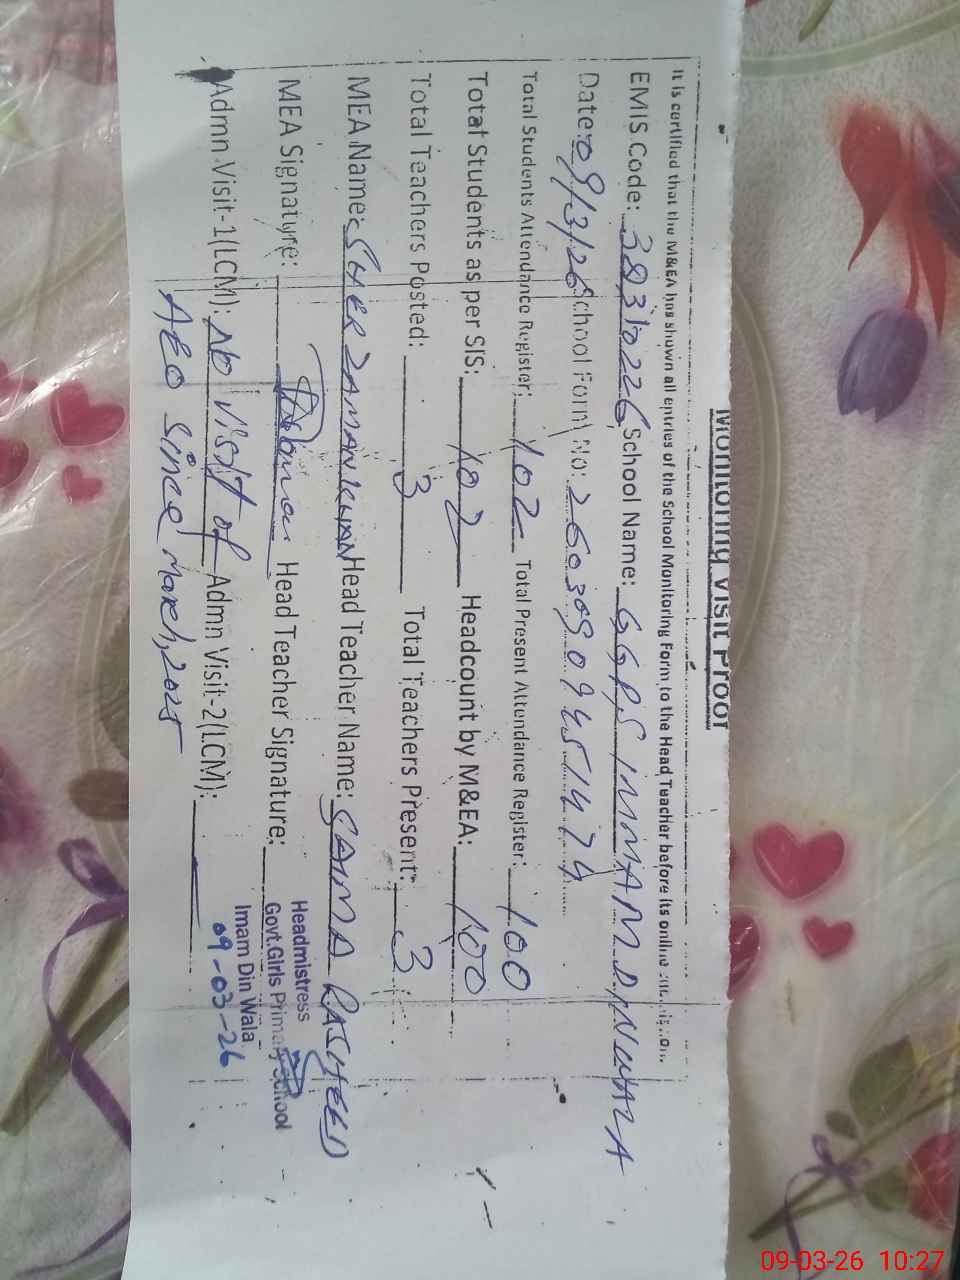 Monitoring Visit Proof
It is certified that the M&EA has shown all entries of the School Monitoring Form to the Head Teacher before its online
EMIS Code: 38310226 School Name: GGPS IMAM DIN WALA
Date: 09/3/26 School Form No: 2603090945
Total Students Attendance Register: 102 Total Present Attendance Register: 100
Total Students as per SIS: 102 Headcount by M&EA: 100
Total Teachers Posted: 3 Total Teachers Present: 3
MEA Name: SHER ZAMAN KHAN Head Teacher Name: SAIMA RASHEED
MEA Signature: Head Teacher Signature:
Headmistress
Govt.Girls Primary School
Imam Din Wala
09-03-26
Admn Visit-1(LCM): No visit of Admn Visit-2(LCM):
AEO since March, 2025
09-03-26 10:27